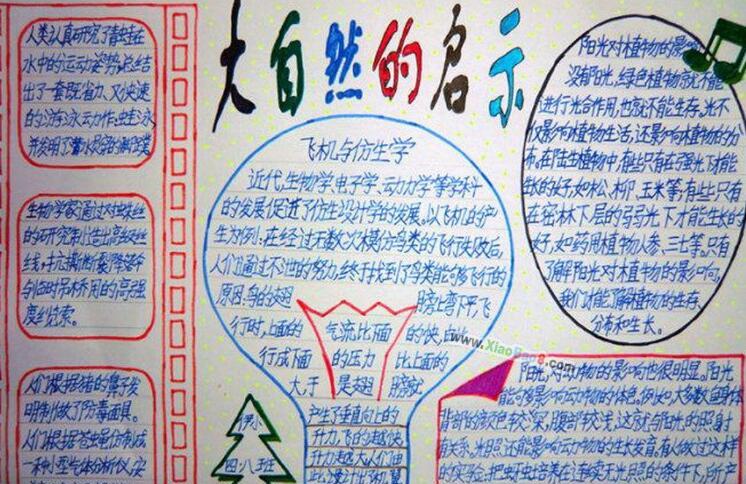 大自然的启示
人类认真研究了青蛙在
水中的运动姿势,总结
出了一套既省力、又快速
的游泳动作:蛙泳
并发明了潜水员的
生物学家通过对蛛丝
的研究制造出高级丝
线,抗撕断裂降落伞
与临时吊桥用的高强
度缆索。
人们根据猪的鼻子发
明制做了防毒面具。
人们根据苍蝇仿制成
一种小型气体分析仪,安
飞机与仿生学
近代,生物学、电子学、动力学等学科
的发展促进了仿生设计学的发展。以飞机的产
生为例:在经过无数次模仿鸟类的飞行失败后,
人们通过不泄的努力,终于找到了鸟类能够飞行的
原因:鸟的翅膀上弯下平,飞
行时,上面的气流比下面的快,由此
行成下面的压力比上面的
大,于是翅膀就
产生了垂直向上的
升力,飞的越快,
升力越大。人们由
伊小
四·八班
阳光对植物的影响
没有阳光,绿色植物就不能
进行光合作用,也就不能生存。光不
仅影响植物生活,还影响植物的分
布,在陆生植物中,有些只有在强光下才能
生长的好,如松、柳、玉米等,有些只有
在密林下层的弱弱光下才能生长的
好,如药用植物人参、三七等。只有
了解阳光对植物的影响,
我们才能了解植物的生存、
分布和生长。
www.XiaoBao8.com
阳光对动物的影响也很明显。阳光
能够影响动物的体色,例如大多数鱼身体
背部的颜色较深,腹部较浅,这就与阳光的照射
有关系。光照还能影响动物的生长发育,有人做过这样
的实验,把蚜虫培养在连续无光照的条件下,所产